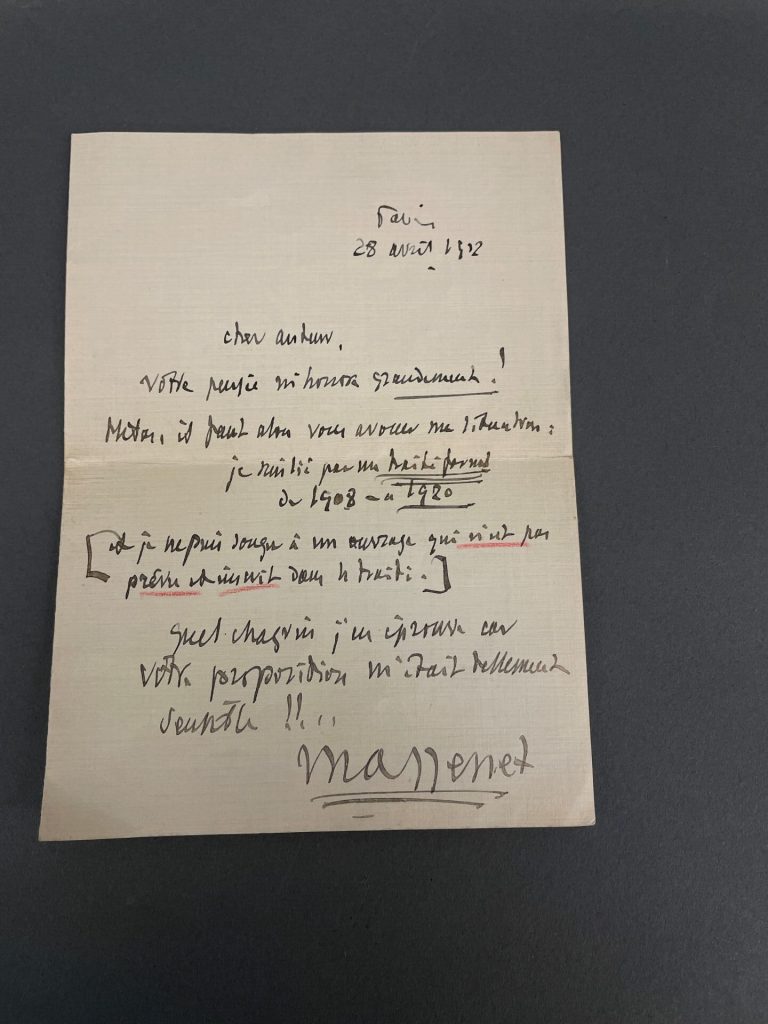 Paris
28 avril 1912
cher auteur,
Votre pensée m'honore grandement !
Hélas, il faut alors vous avouer ma situation :
je suis lié par un traité formel
de 1908 – à 1920
[et je ne puis songer à un ouvrage qui n'est pas
prévu et inscrit dans le traité.]
quel chagrin j'en éprouve car
votre proposition m'était tellement
sensible !!...
Massenet